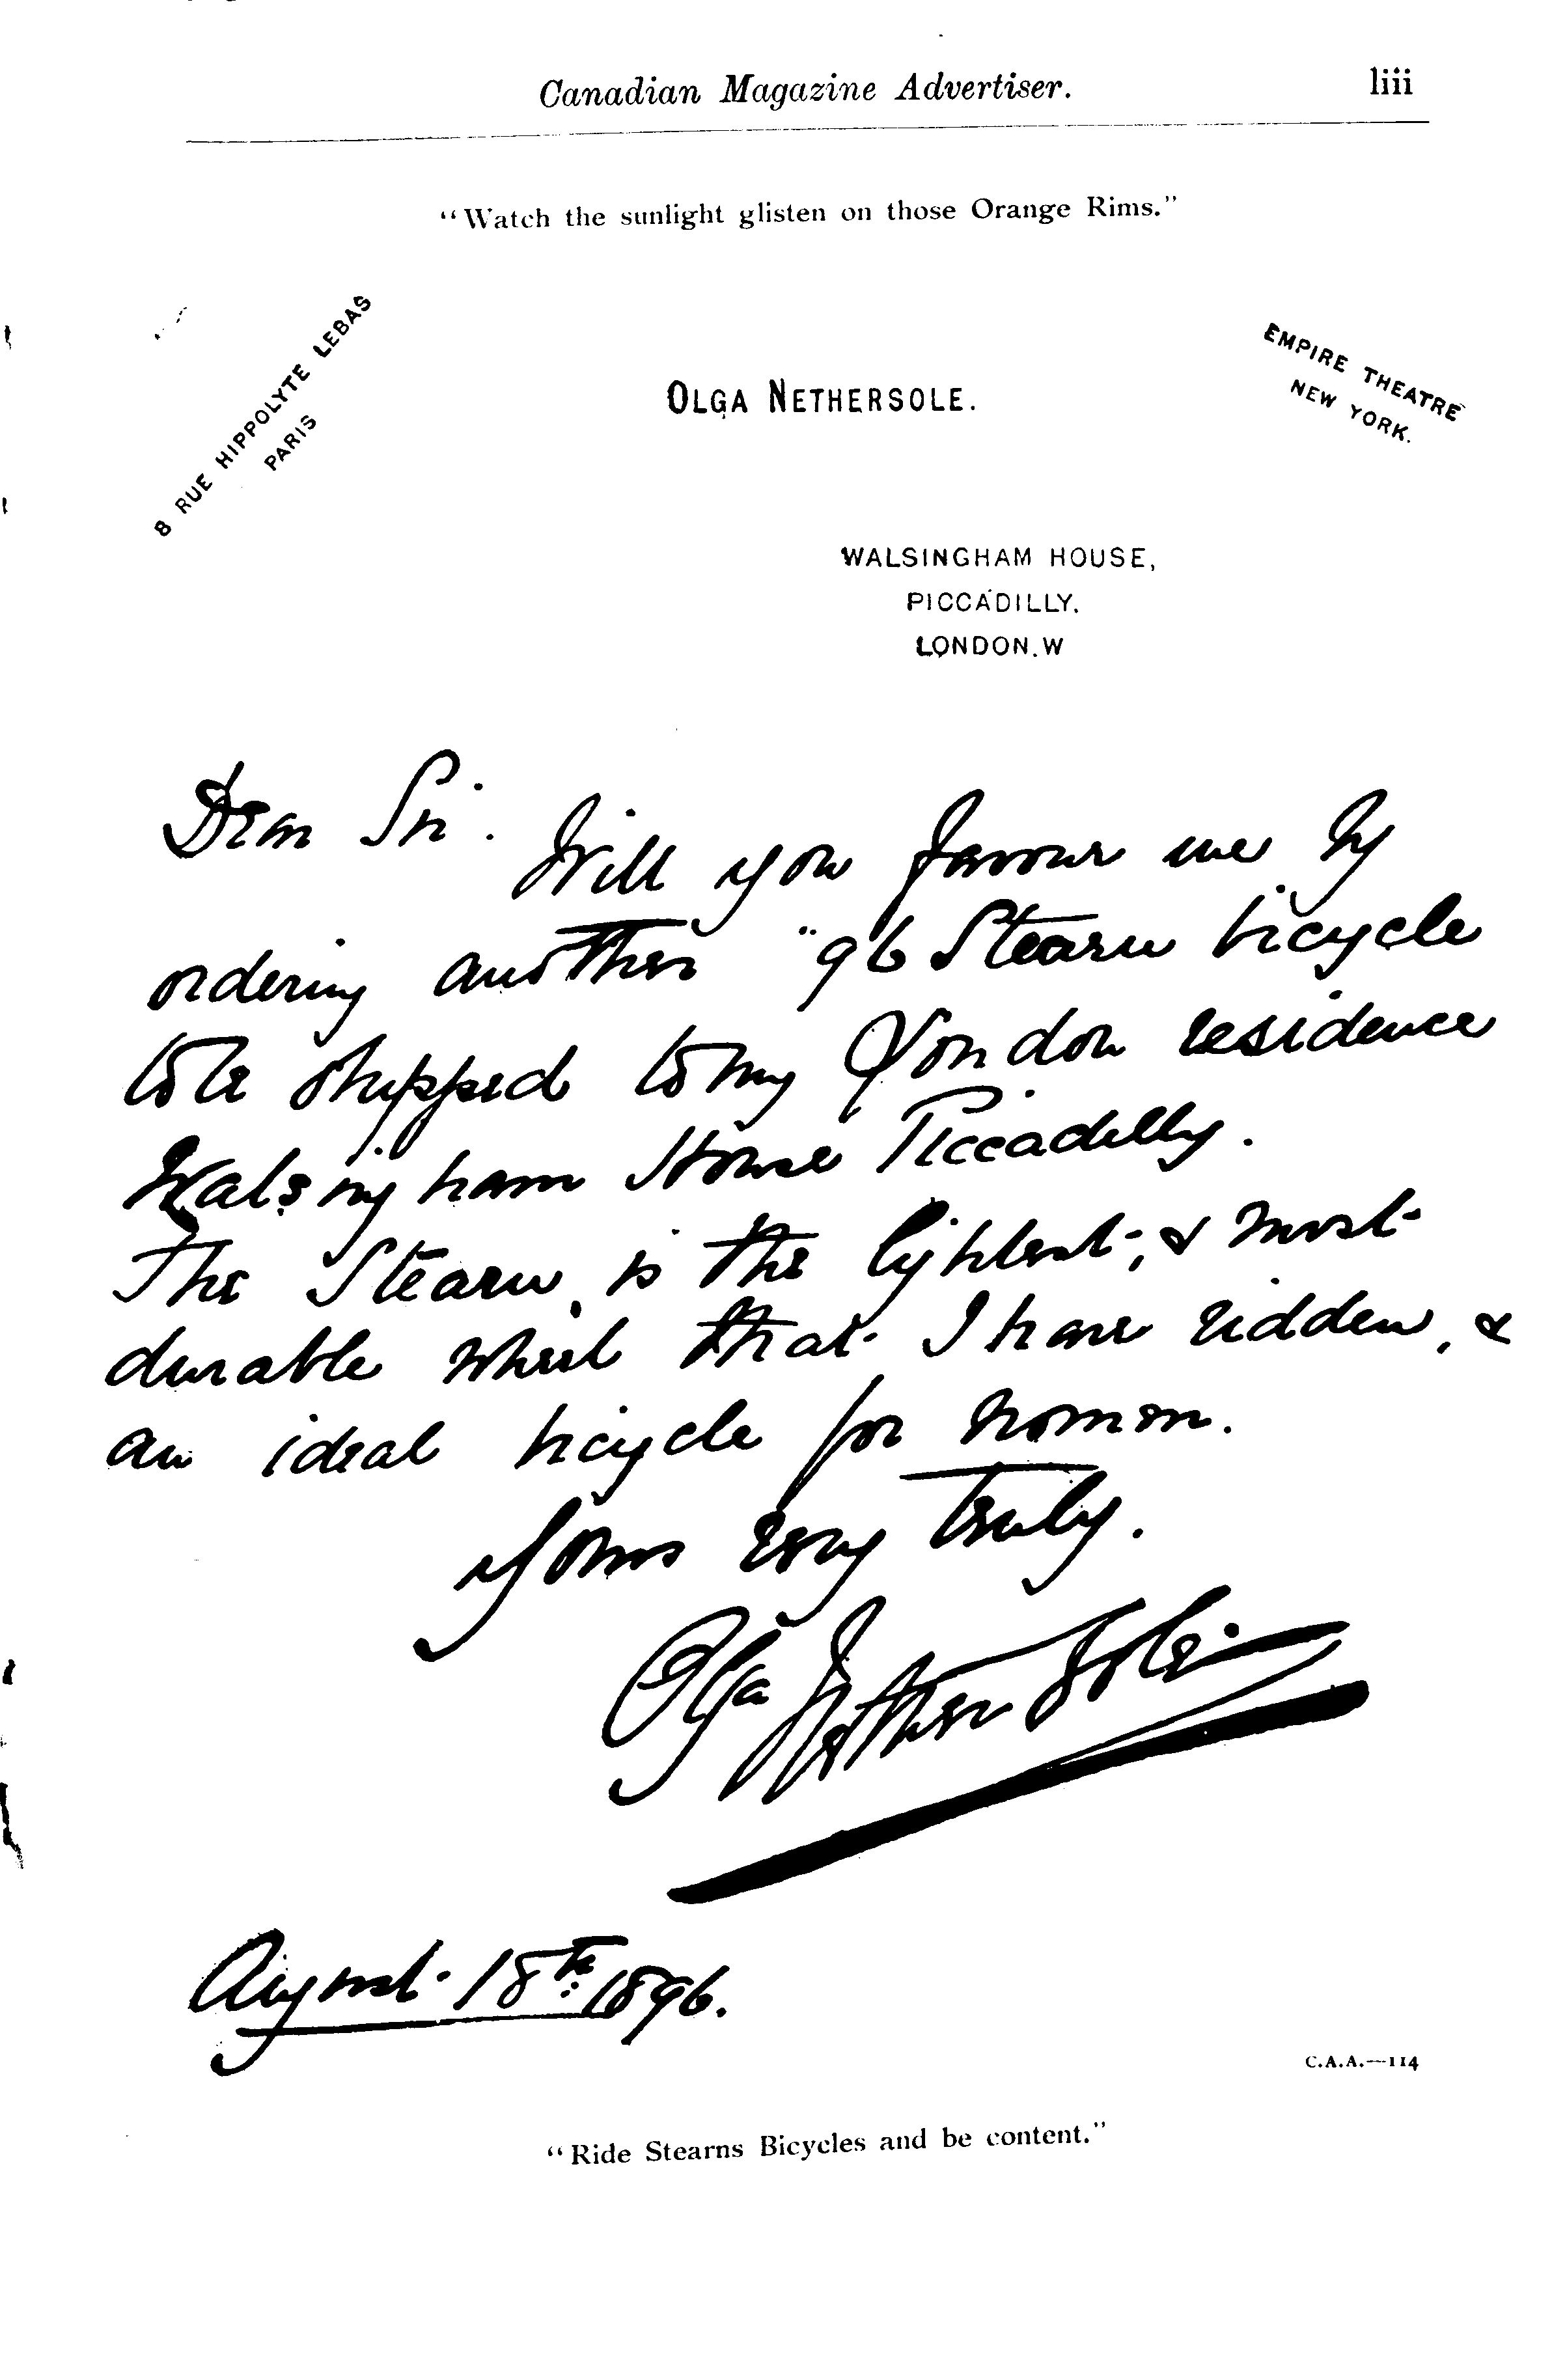 Canadian Magazine Advertiser. liii
"Watch the sunlight glisten on those Orange Rims."
8 RUE HIPPOLYTE LEBAS
PARIS
OLGA NETHERSOLE.
EMPIRE THEATRE
NEW YORK.
WALSINGHAM HOUSE,
PICCADILLY.
LONDON.W
Dear Sir.
Will you favour me by
ordering another "96 Stearn bicycle
to be shipped to my London residence
Walsingham House Piccadilly.
The Stearn, is the lightest, & most
durable wheel that I have ridden, &
an ideal bicycle for women.
Yours very truly.
Olga Nethersole.
August 18th 1896.
C.A.A.—114
"Ride Stearns Bicycles and be content."